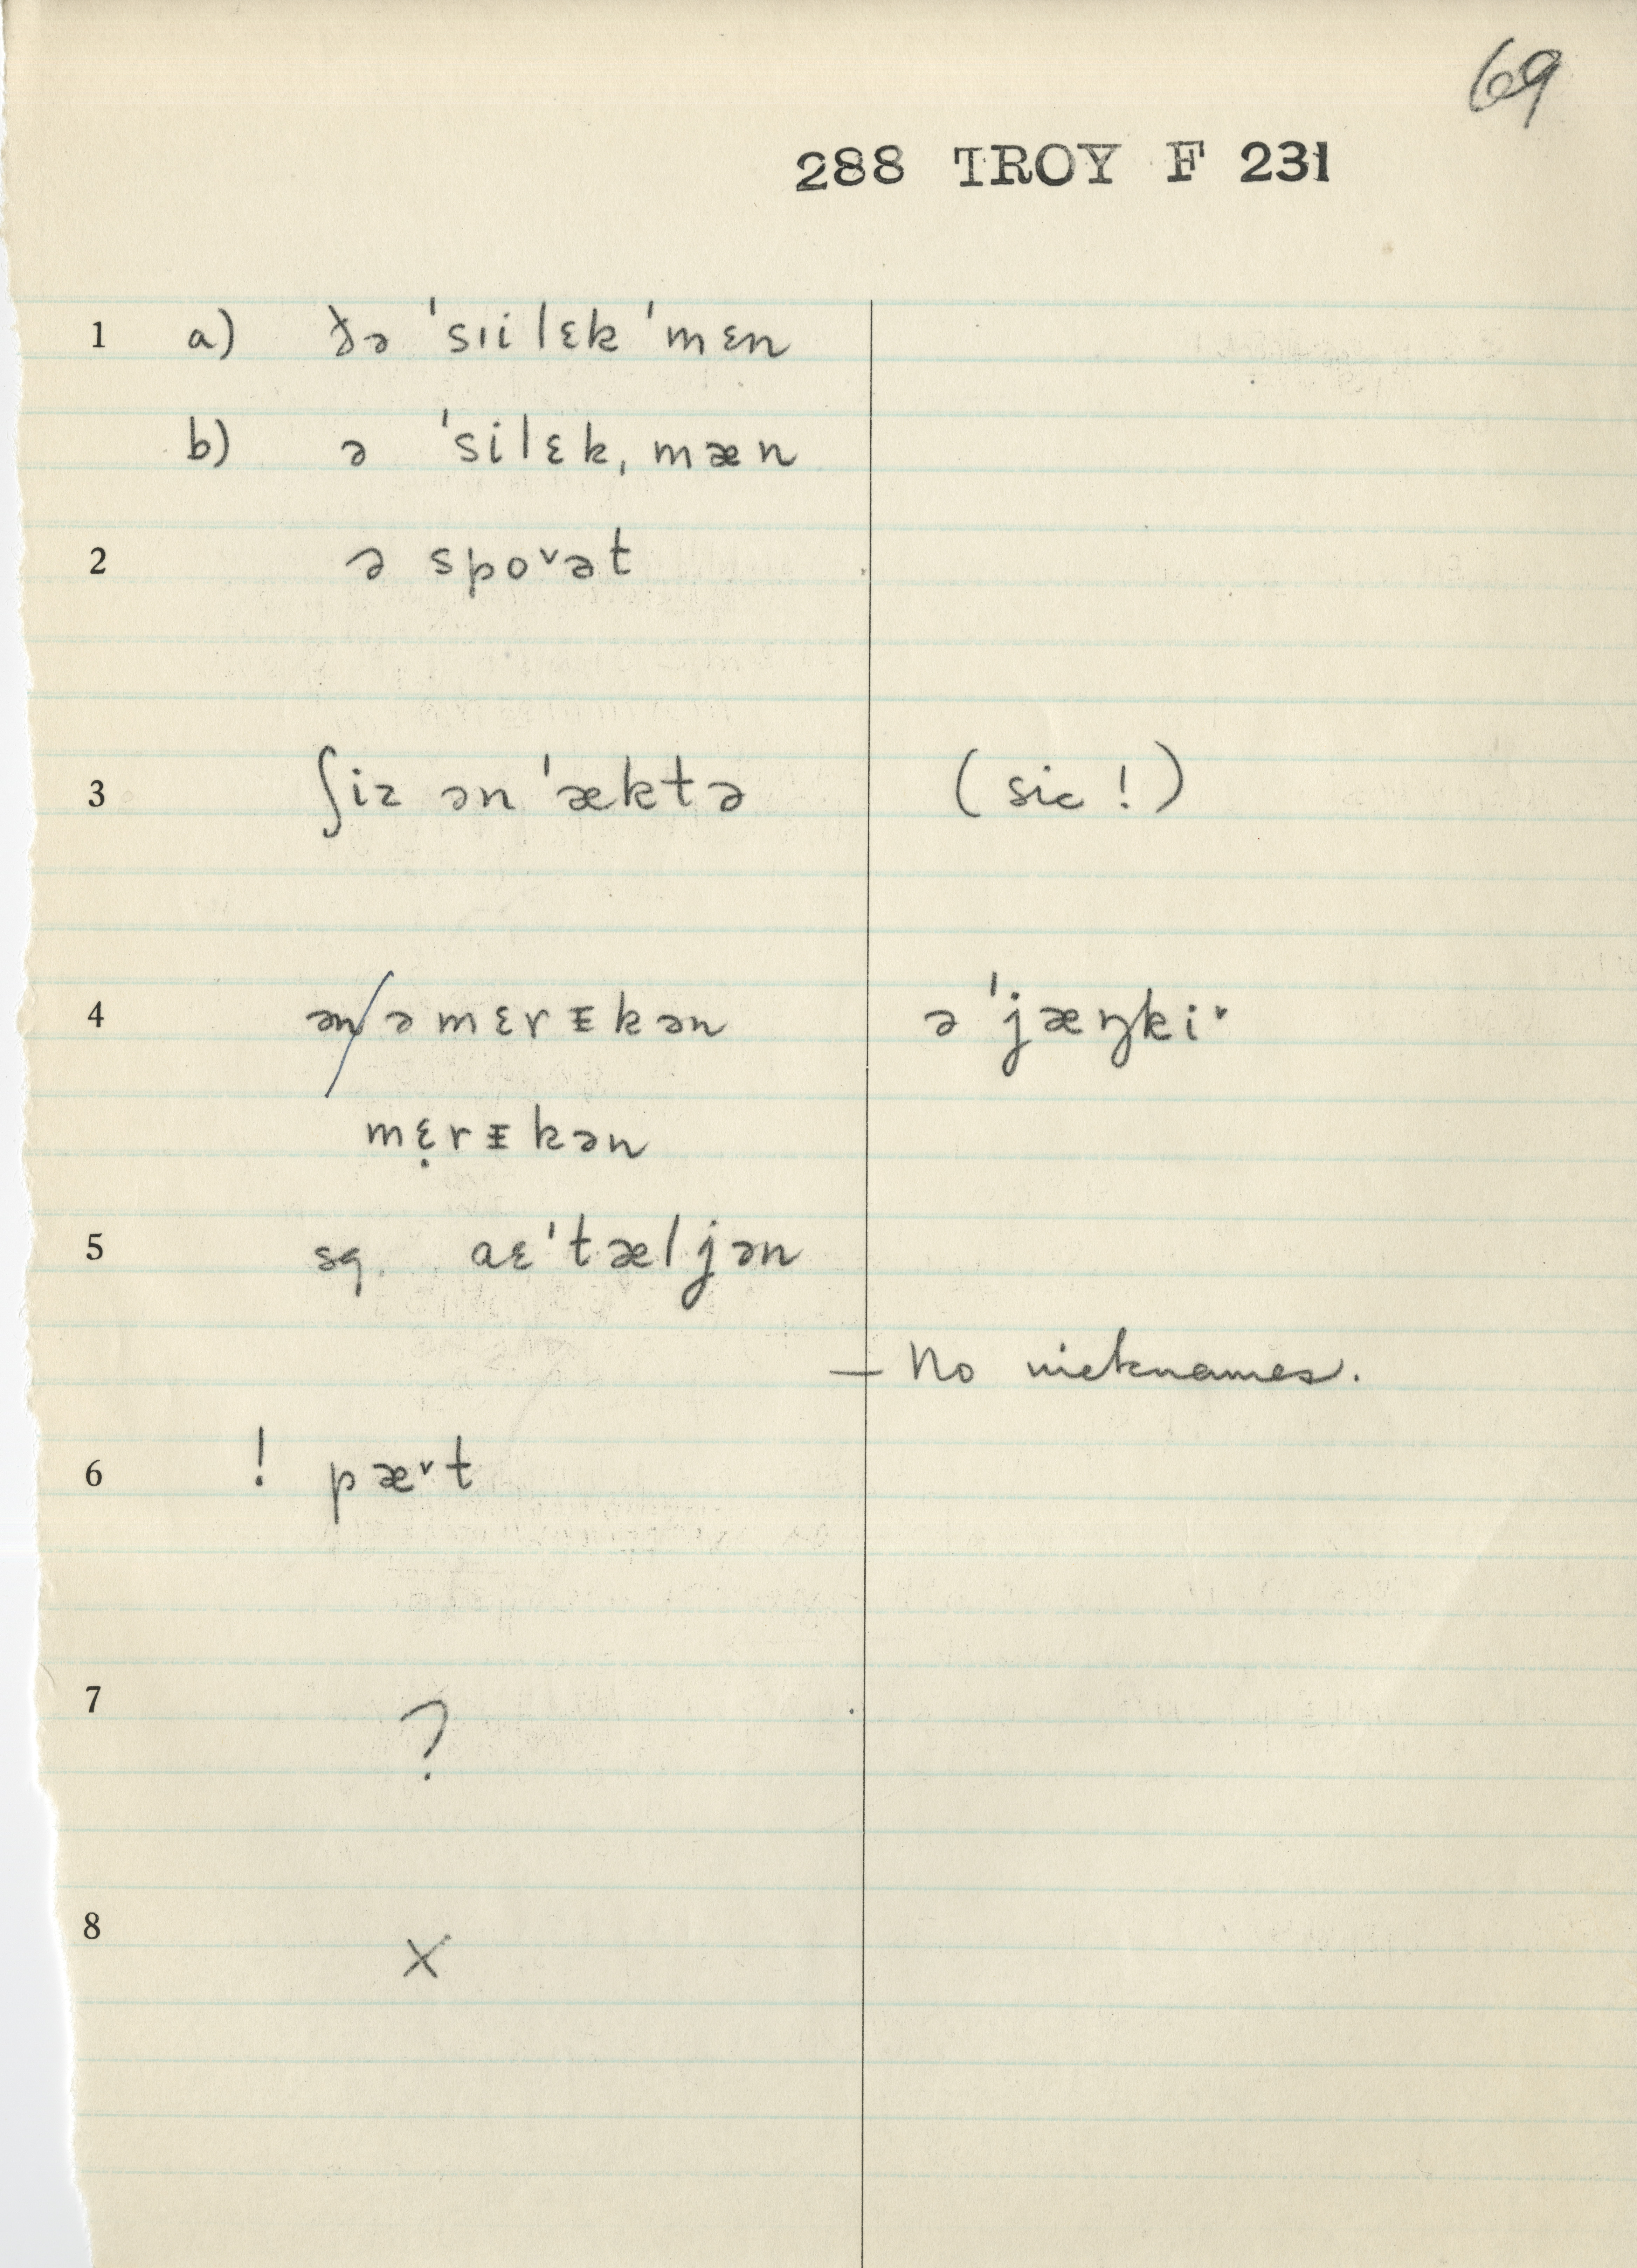 69
288 TROY F 231
1 a) ðə 'sɪilɛk 'mɛn
b) ə 'silɛkˌmæn
2 ə spoᵛət
3 ʃiz ən 'æktə (sic!)
4 ən/əmɛrᵻkən ə 'jæŋkiᵛ
mɛ̣rᵻkən
5 sg. aɛ'tæljən
— No nicknames.
6 ! pæᵛt
7 ?
8 X